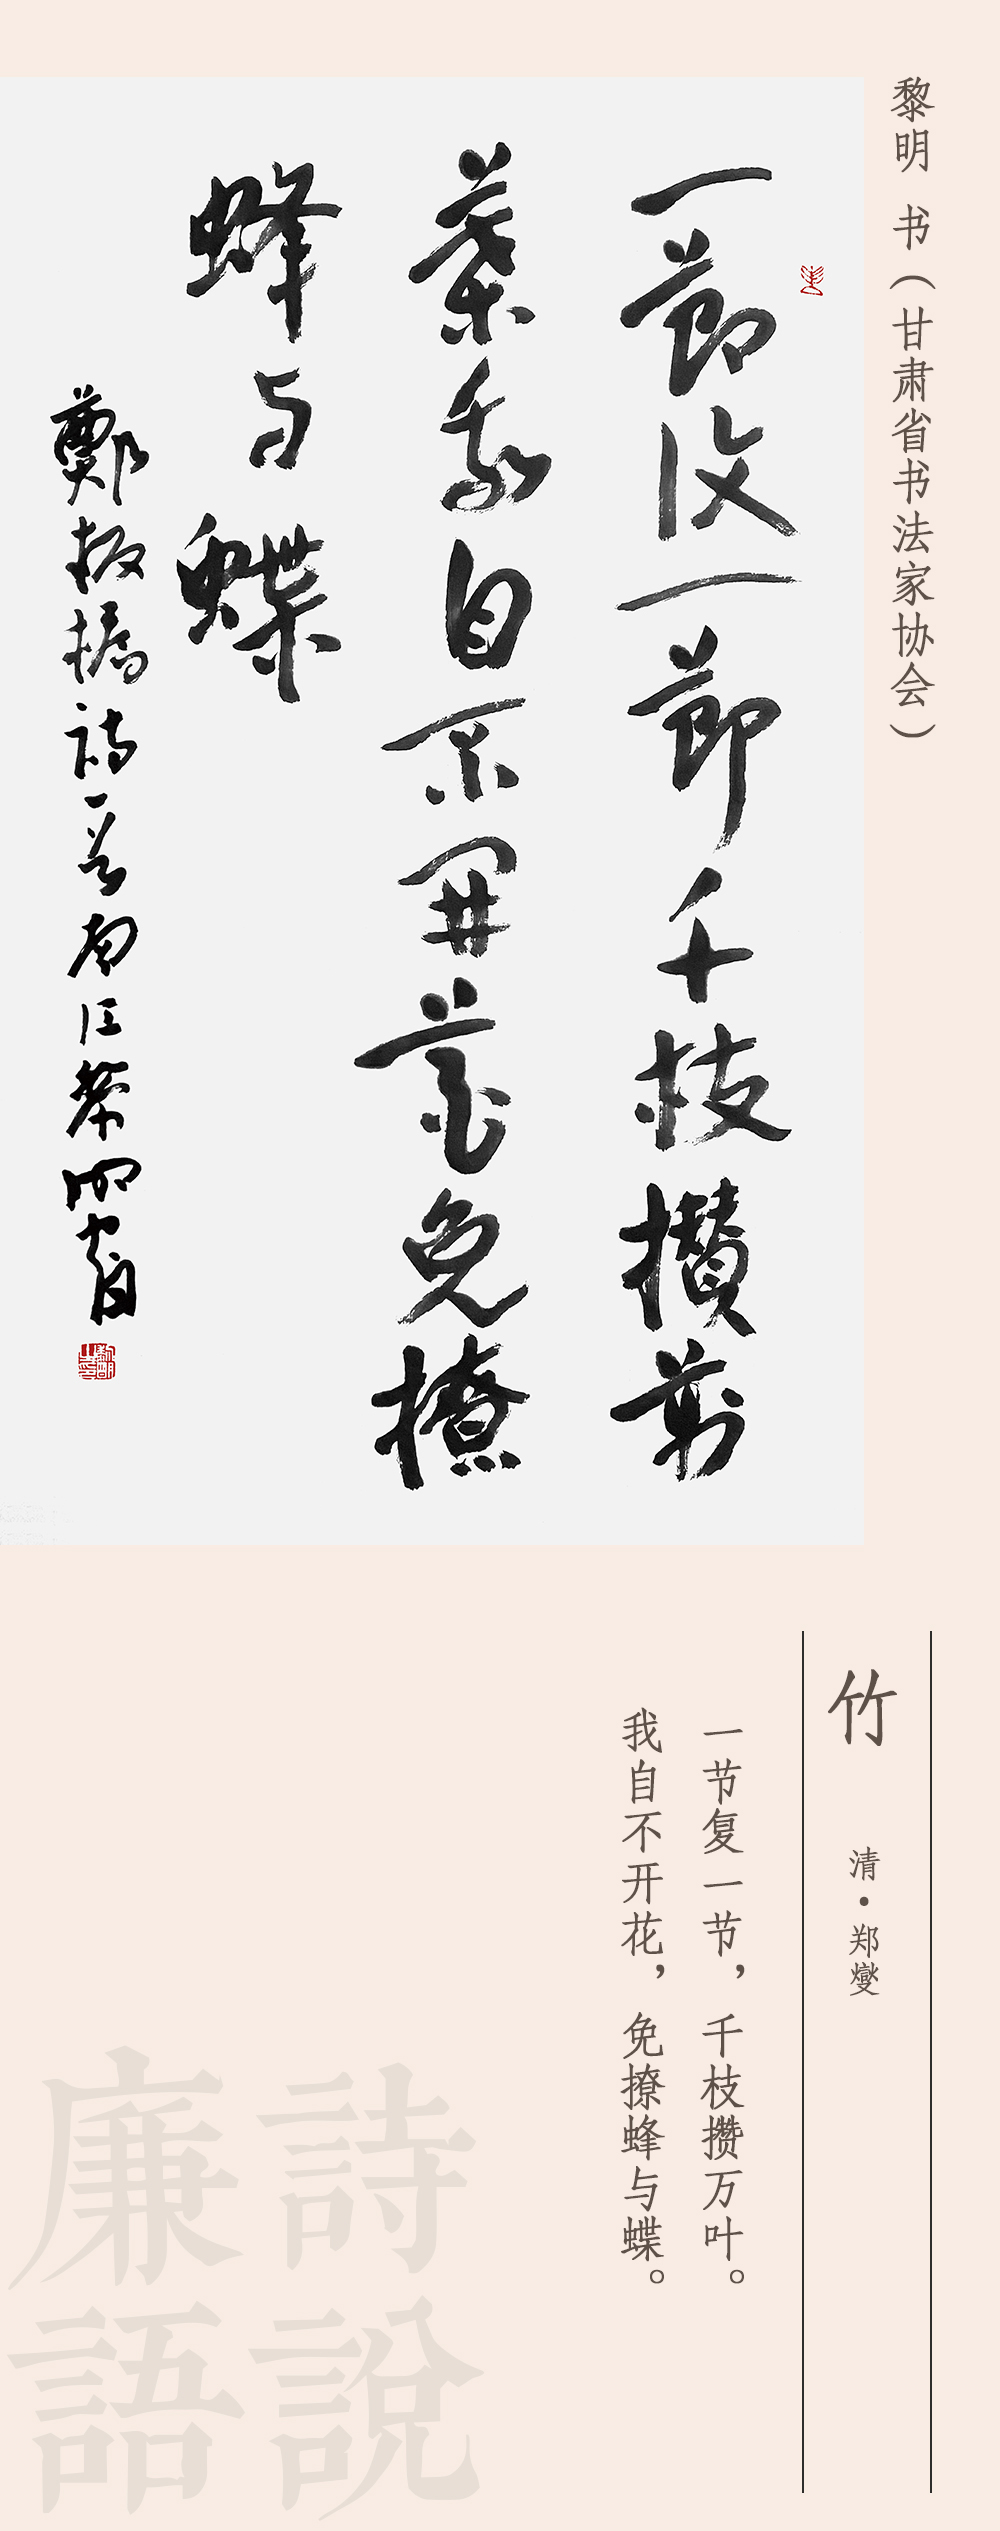 黎明 书（甘肃省书法家协会）
一節復一節千枝攢萬
葉我自不開花免撩
蜂与蝶
鄭板橋詩一首
竹
清·郑燮
一节复一节，千枝攒万叶。
我自不开花，免撩蜂与蝶。
詩說
廉語